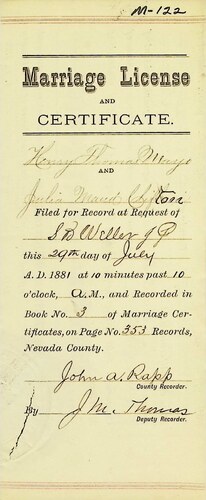 M-122
Marriage License
AND
CERTIFICATE.
Henry Thomas Mays
AND
Julia Maud
Filed for Record at Request of
S B Weller J P
this 29th day of July
A. D. 1881 at 10 minutes past 10
o'clock, A. M., and Recorded in
Book No. 3 of Marriage Cer-
tificates, on Page No. 353 Records,
Nevada County.
John A. Rapp
County Recorder.
By J. M. Thomas
Deputy Recorder.